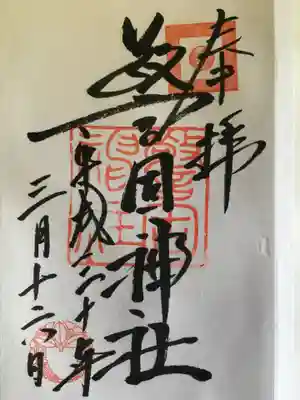 奉拝
敢国神社
平成二十年
三月十六日